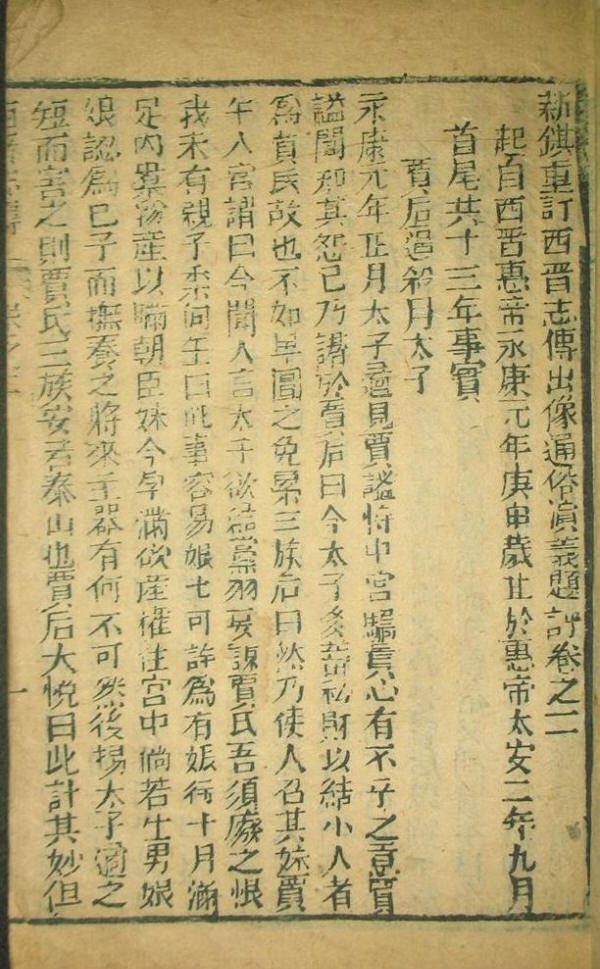 新鐫重訂西晋志傳出像通俗演義題評卷之二
起自西晋惠帝永康元年庚申歲止於惠帝太安二年九月
首尾共十三年事實
賈后過殺月太子
永康元年正月太子適見賈謐恃中宮驕貴心有不平之意賈
謐聞知其怨己乃譖於賈后曰今太子多畜私財以結小人者
為賈氏故也不如早圖之免累三族后曰然乃使人召其妹賈
午入宮謂曰今聞人言太子欲結黨羽反謀賈氏吾須廢之恨
我未有親子柰何午曰此事容易娘七可許為有娠待十月滿
足內異物產以瞞朝臣妹今孕滿欲產權往宮中倘若生男娘
娘認為己子而撫養之將來主器有何不可然後捐太子適之
短而害之則賈氏三族安若泰山也賈后大悅曰此計甚妙但
西晋志傳 卷之二 一